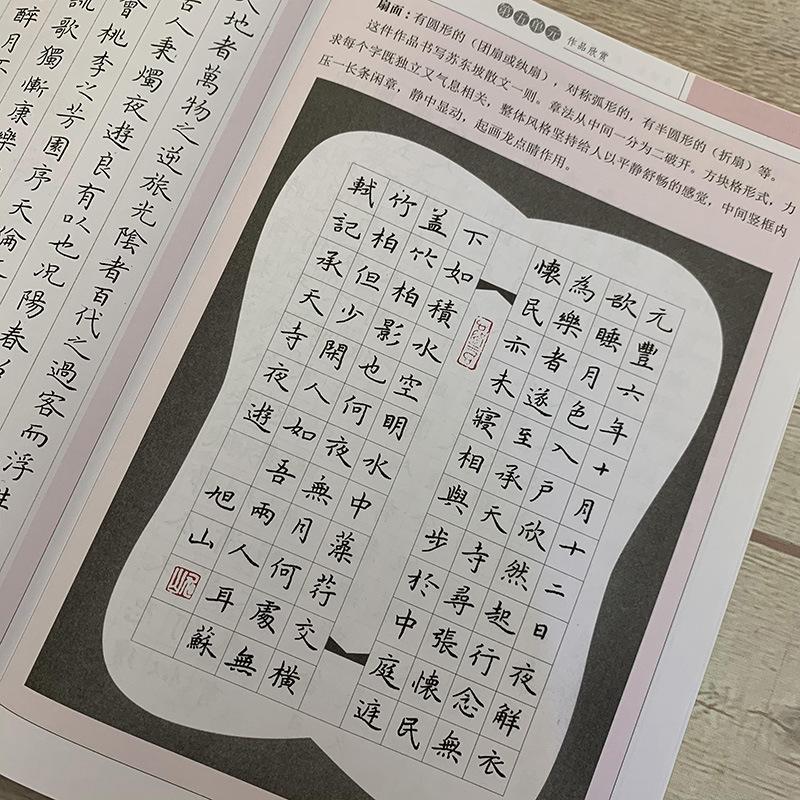 第五单元
作品欣赏
扇面:有圆形的(团扇或纨扇),对称弧形的,有半圆形的(折扇)等。
这件作品书写苏东坡散文一则。章法从中间一分为二破开。方块格形式,力
求每个字既独立又气息相关,整体风格坚持给人以平静舒畅的感觉,中间竖框内
压一长条闲章,静中显动,起画龙点睛作用。
元豐六年十月十二日夜解衣
欲睡月色入户欣然起行念無
為樂者遂至承天寺尋張懷民
懷民亦未寢相與步於中庭庭
下如積水空明水中藻荇交橫
盖竹柏影也何夜無月何處無
竹柏但少閑人如吾兩人耳蘇
軾記承天寺夜遊
旭山
地者萬物之逆旅光陰者百代之過客而浮
古人秉燭夜遊良有以也况陽春
會桃李之芳園序天倫
歌獨慚康樂
醉月